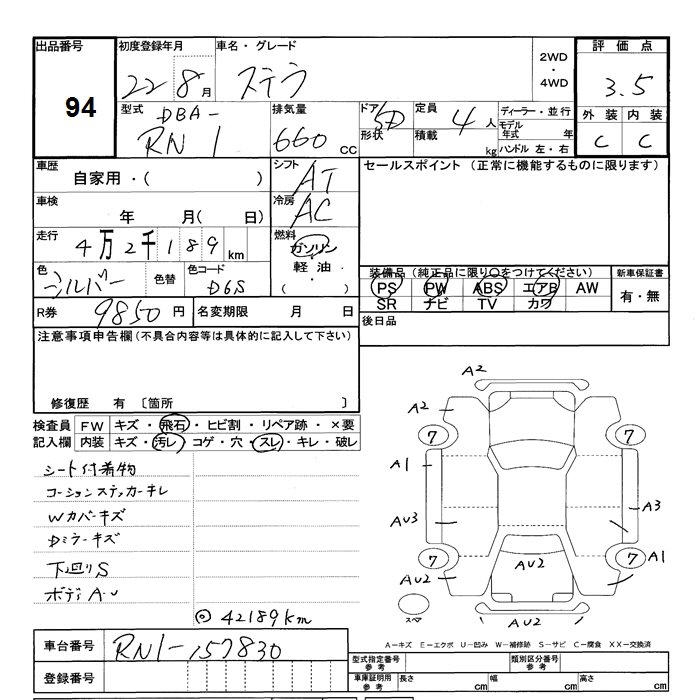 出品番号 94
初度登録年月 22 8月
車名・グレード ステラ
2WD・4WD
評価点 3.5
型式 DBA- RN1
排気量 660 cc
ドア形状 5D
定員 4人
積載 kg
ディーラー・並行
モデル年式 年
ハンドル 左・右
外装 C 内装 C
車歴 自家用・( )
シフト AT
セールスポイント (正常に機能するものに限ります)
車検 年 月( 日)
冷房 AC
走行 4万2千189km
燃料 ガソリン 軽油・( )
色 シルバー 色替 色コード D6S
装備品 (純正品に限り○をつけてください)
PS PW ABS エアB AW
SR ナビ TV カワ
新車保証書 有・無
R券 9850円 名変期限 月 日
後日品
注意事項申告欄(不具合内容等は具体的に記入して下さい)
修復歴 有 〔箇所 〕
検査員記入欄 FW キズ・飛石・ヒビ割・リペア跡・×要
内装 キズ・汚レ・コゲ・穴・スレ・キレ・破レ
シート付着物
コーションステッカーキレ
Wカバーキズ
Dミラーキズ
下廻りS
ボディA・U
◎42189km
A2
A2
7 7
A1
A3
AU3
7 7 A1
AU2 AU2
スペア
AU2
A-キズ E-エクボ U-凹み W-補修跡 S-サビ C-腐食 XX-交換済
車台番号 RN1-157830
登録番号
型式指定番号参考 類別区分番号参考
車庫証明用参考 長さ cm 幅 cm 高さ cm